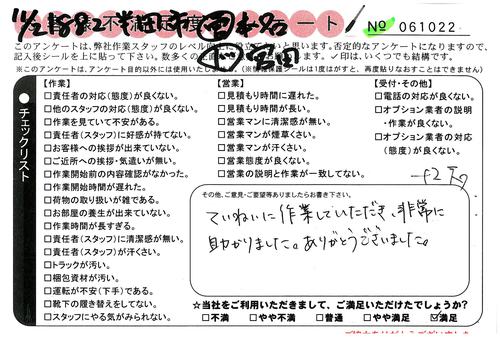 半田市
アンケート
№ 061022
このアンケートは、弊社作業スタッフのレベル向上に役立てたいと思います。否定的なアンケートになりますので、
記入後シールを上に貼って下さい。数多くの
✓印は、いくつでも結構です。
※このアンケートは、アンケート目的以外には使用いたしません。(※情報保護シールは1度はがすと、再度貼りなおすことはできません)
チェックリスト
【作業】
□責任者の対応(態度)が良くない。
□他のスタッフの対応(態度)が良くない。
□作業を見ていて不安がある。
□責任者(スタッフ)に好感が持てない。
□お客様への挨拶が出来ていない。
□ご近所への挨拶・気遣いが無い。
□作業開始前の内容確認がなかった。
□作業開始時間が遅れた。
□荷物の取り扱いが雑である。
□お部屋の養生が出来ていない。
□作業時間が長すぎる。
□責任者(スタッフ)に清潔感が無い。
□責任者(スタッフ)が汗くさい。
□トラックが汚い。
□梱包資材が汚い。
□運転が不安(下手)である。
□靴下の履き替えをしてない。
□スタッフにやる気がみられない。
【営業】
□見積もり時間に遅れた。
□見積もり時間が長い。
□営業マンに清潔感が無い。
□営業マンが煙草くさい。
□営業マンが汗くさい。
□営業態度が良くない。
□営業の説明と作業が一致してない。
【受付・その他】
□電話の対応が良くない。
□オプション業者の説明
・作業が良くない。
□オプション業者の対応
(態度)が良くない。
その他、ご意見・ご要望等ありましたらお書き下さい。
ていねいに作業していただき、非常に
助かりました。ありがとうございました。
☆当社をご利用いただきまして、ご満足いただけたでしょうか?
□不満 □やや不満 □普通 □やや満足 ☑満足